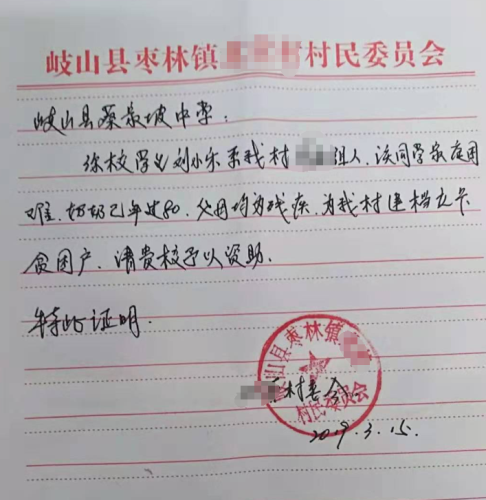 岐山县枣林镇村民委员会
岐山县蔡家坡中学:
你校学生刘小乐系我村组人、该同学家庭困
难、奶奶已年过80、父母均为残疾、为我村建档立卡
贫困户、请贵校予以资助.
特此证明.
岐山县枣林镇
村民委员会
村委会
2019.3.15.